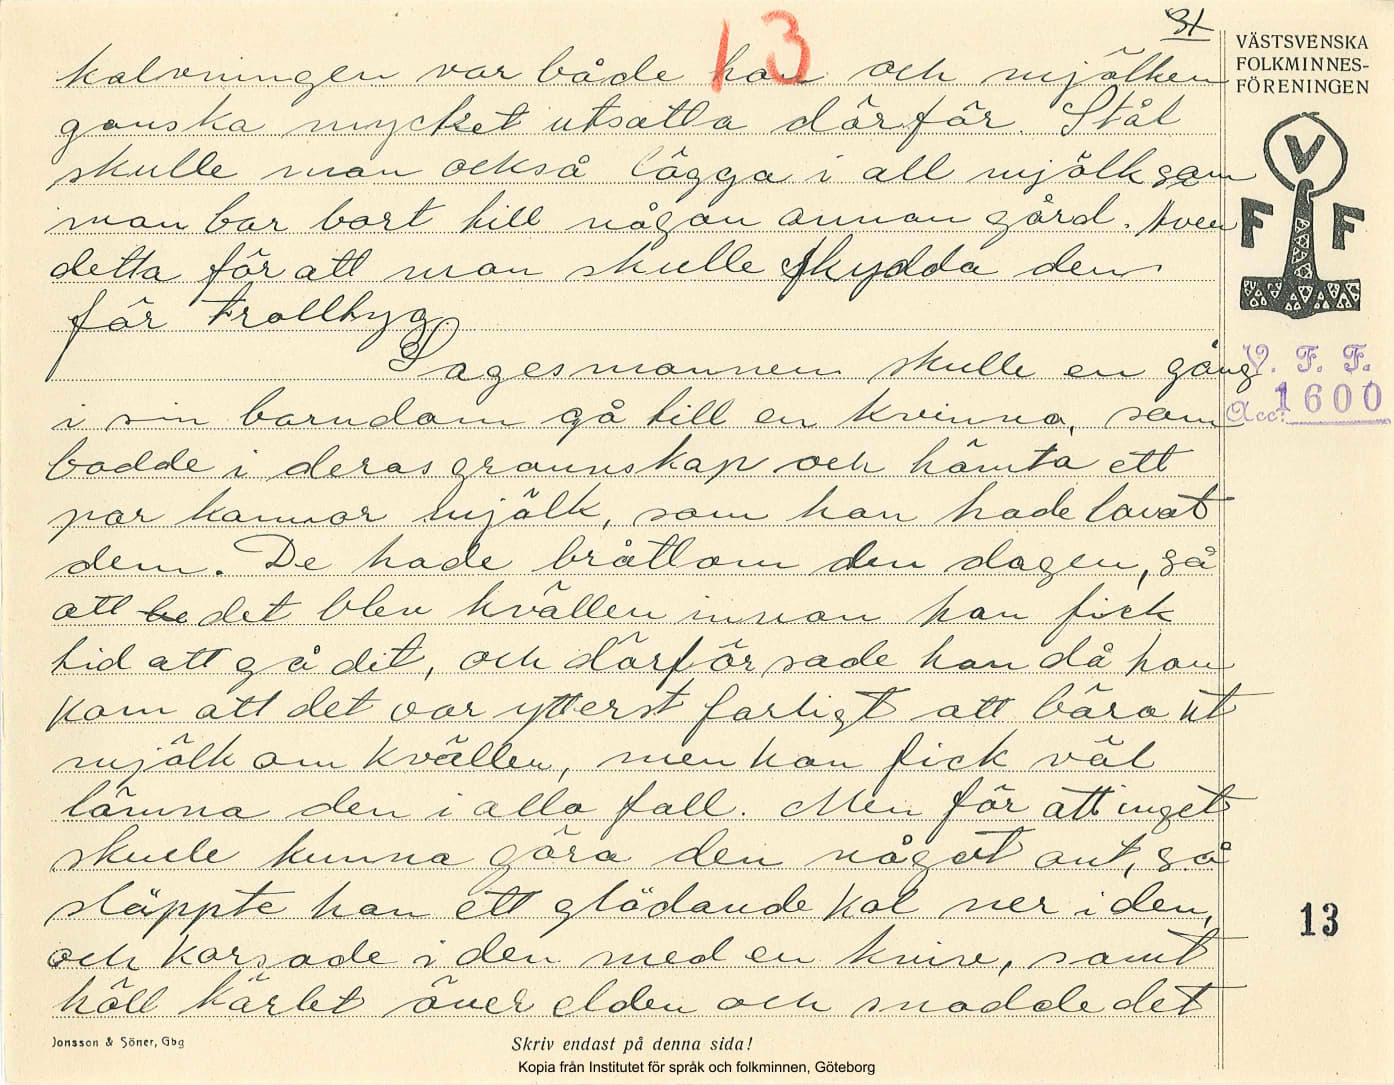 13
31
VÄSTSVENSKA
FOLKMINNES-
FÖRENINGEN
V
F F
V. F. F.
Acc: 1600
kalvningen var både hon och mjölken
ganska mycket utsatta därför. Stål
skulle man också lägga i all mjölk som
man bar bort till någon annan gård. Även
detta för att man skulle skydda den
för trolltyg.
Sagesmannen skulle en gång
i sin barndom gå till en kvinna, som
bodde i deras grannskap och hämta ett
par kannor mjölk, som hon hade lovat
dem. De hade bråttom den dagen, så
att be det blev kvällen innan han fick
tid att gå dit, och därför sade hon då han
kom att det var ytterst farligt att bära ut
mjölk om kvällen, men han fick väl
lämna den i alla fall. Men för att inget
skulle kunna göra den något ont, så
släppte hon ett glödande kol ner i den,
och korsade i den med en kniv, samt
höll kärlet över elden och snodde det
13
Jonsson & Söner, Gbg
Skriv endast på denna sida!
Kopia från Institutet för språk och folkminnen, Göteborg